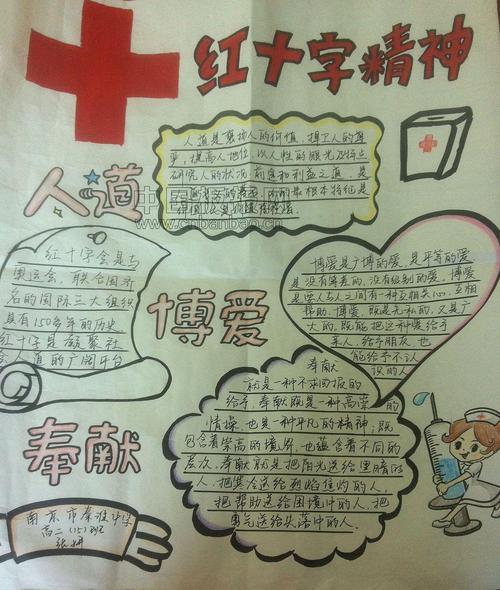 红十字精神
人道
人道是褒扬人的价值，捍卫人的尊
严，提高人地位，以人性的眼光及特点
研究人的状况，前景和利益之道，是
www.cnbanbao.cn
红十字会是与
奥运会 联合国齐
名的国际三大组织
具有150多年的历史
红十字是凝聚社
会人道的广阔平台
博爱
博爱是广博的爱，是平等的爱
是没有等差的，没有级别的爱。博爱
是要人与人之间有一种互相关心，互相
帮助，博爱，既是无私的，又是广
大的，既能把这种爱给予
亲人，给予朋友，也
能给予不认
识的人
奉献
奉献
就是一种不求回报的
给予，奉献既是一种高崇的
情操，也是一种平凡的精神；既
包含着崇高的境界，也蕴含着不同的
层次，奉献就是把阳光送给黑暗的
人，把集冷送给烈焰住灼的人，
把帮助送给困境中的人，把
勇气送给失落中的人.
南京市秦淮中学
高二（15）班
张妍